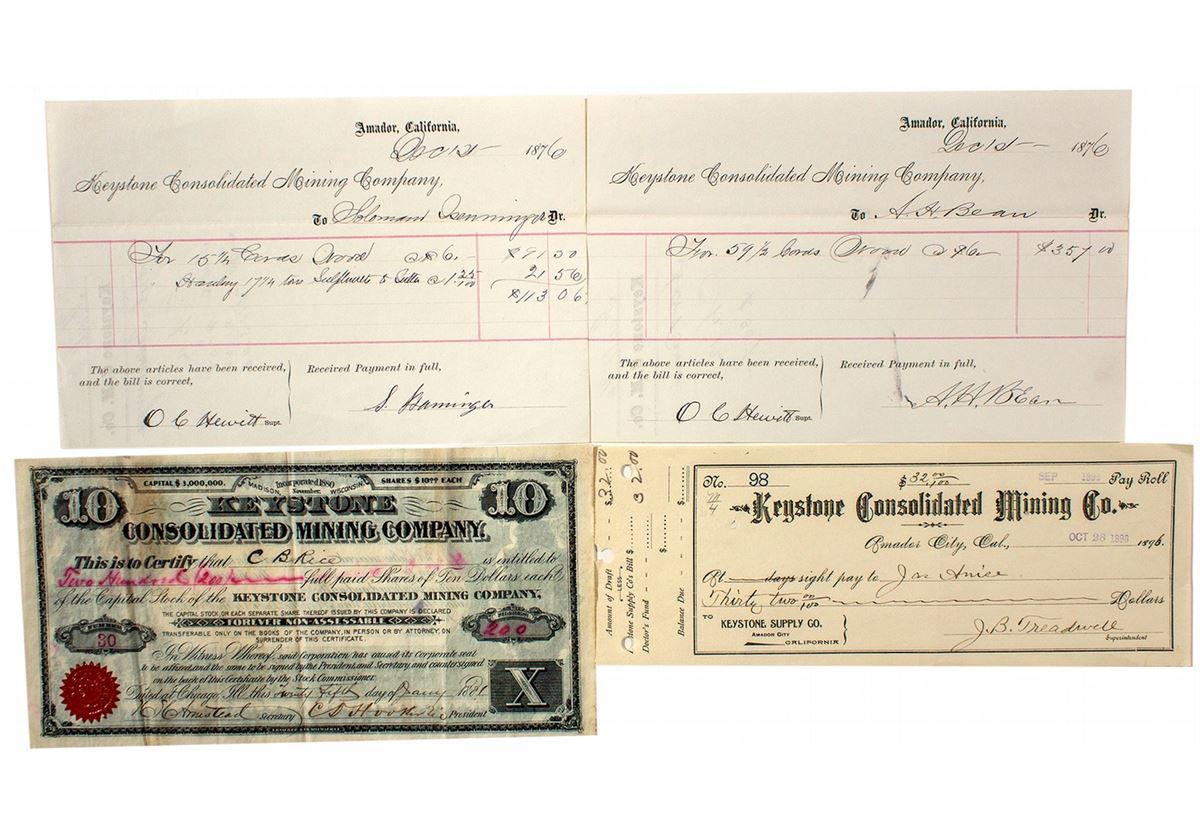 Amador, California,
Dec 1st 1876
Keystone Consolidated Mining Company,
To Dr.
For 15 1/4 Cords Wood @ $6. $91 50
Hauling 17 1/4 tons Sulphurets to Sutter @ 1.25/100 21 56
$113 06
The above articles have been received,
and the bill is correct,
Received Payment in full,
O C Hewitt Supt.
S.
Amador, California,
Dec 1st 1876
Keystone Consolidated Mining Company,
To A. H. Bean Dr.
For 59 1/2 Cords Wood @ $6 $357 00
The above articles have been received,
and the bill is correct,
Received Payment in full,
O C Hewitt Supt.
A. H. Bean
CAPITAL $3,000,000.
Incorporated 1880
MADISON, November, WISCONSIN.
SHARES $10.00 EACH
10 KEYSTONE 10
CONSOLIDATED MINING COMPANY.
This is to Certify that C B Rice is entitled to
Two Hundred (200) full paid Shares of Ten Dollars each
of the Capital Stock of the KEYSTONE CONSOLIDATED MINING COMPANY.
THE CAPITAL STOCK, OR EACH SEPARATE SHARE THEREOF ISSUED BY THIS COMPANY IS DECLARED
FOREVER NON-ASSESSABLE
TRANSFERABLE ONLY ON THE BOOKS OF THE COMPANY, IN PERSON OR BY ATTORNEY, ON
SURRENDER OF THIS CERTIFICATE.
NUMBER
30
SHARES
200
In Witness Whereof, said Corporation has caused its Corporate seal
to be affixed, and the same to be signed by the President, and Secretary, and countersigned
on the back of this Certificate by the Stock Commissioner.
Dated at Chicago, Ill. this twenty fifth day of Jany 1881
Secretary President
X
Amount of Draft $ 32.00
LESS
Keystone Supply Co's Bill $ 32.00
Doctor's Fund $
Balance Due $
No. 98 $32 00/100 SEP 1896 Pay Roll
Keystone Consolidated Mining Co.
Amador City, Cal., OCT 28 1896 1896.
At days sight pay to
Thirty two 00/100 Dollars
TO KEYSTONE SUPPLY CO.
AMADOR CITY
CALIFORNIA
J. B. Treadwell
Superintendent